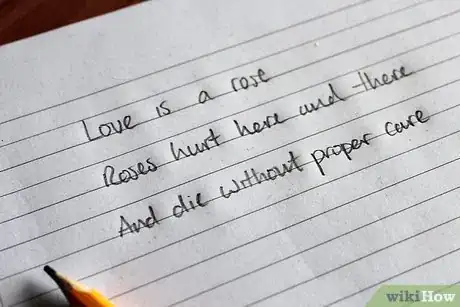 Love is a rose
Roses hurt here and there
And die without proper care
wikiHow